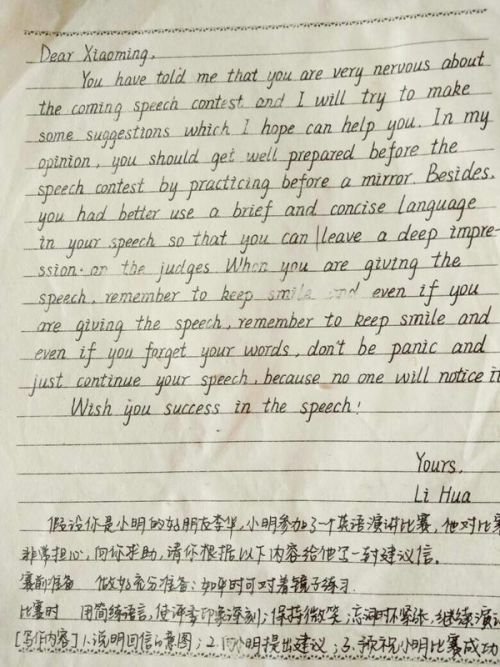 Dear Xiaoming,
You have told me that you are very nervous about
the coming speech contest and I will try to make
some suggestions which I hope can help you. In my
opinion, you should get well prepared before the
speech contest by practicing before a mirror. Besides,
you had better use a brief and concise language
in your speech so that you can leave a deep impre-
ssion on the judges. When you are giving the
speech, remember to keep smile and even if you
are giving the speech, remember to keep smile and
even if you forget your words, don't be panic and
just continue your speech, because no one will notice it
Wish you success in the speech!
Yours,
Li Hua
假设你是小明的好朋友李华,小明参加了一个英语演讲比赛,他对比赛
非常担心,向你求助,请你根据以下内容给他写一封建议信。
赛前准备 做好充分准备:如平时可对着镜子练习
比赛时 用简练语言,使评委印象深刻;保持微笑,忘词时不紧张,继续演讲
[写作内容] 1.说明回信的意图;2.向小明提出建议;3.预祝小明比赛成功